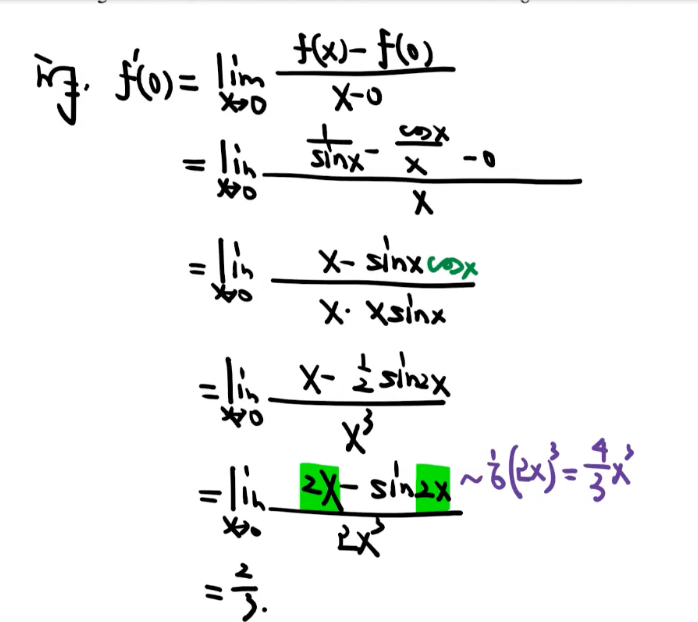 f'(0) = lim_{x→0} (f(x) - f(0)) / (x-0)
= lim_{x→0} (1/sinx - cosx/x - 0) / x
= lim_{x→0} (x - sinx cosx) / (x · xsinx)
= lim_{x→0} (x - 1/2 sin2x) / x³
= lim_{x→0} (2x - sin2x) / 2x³ ~ 1/6 (2x)³ = 4/3 x³
= 2/3.